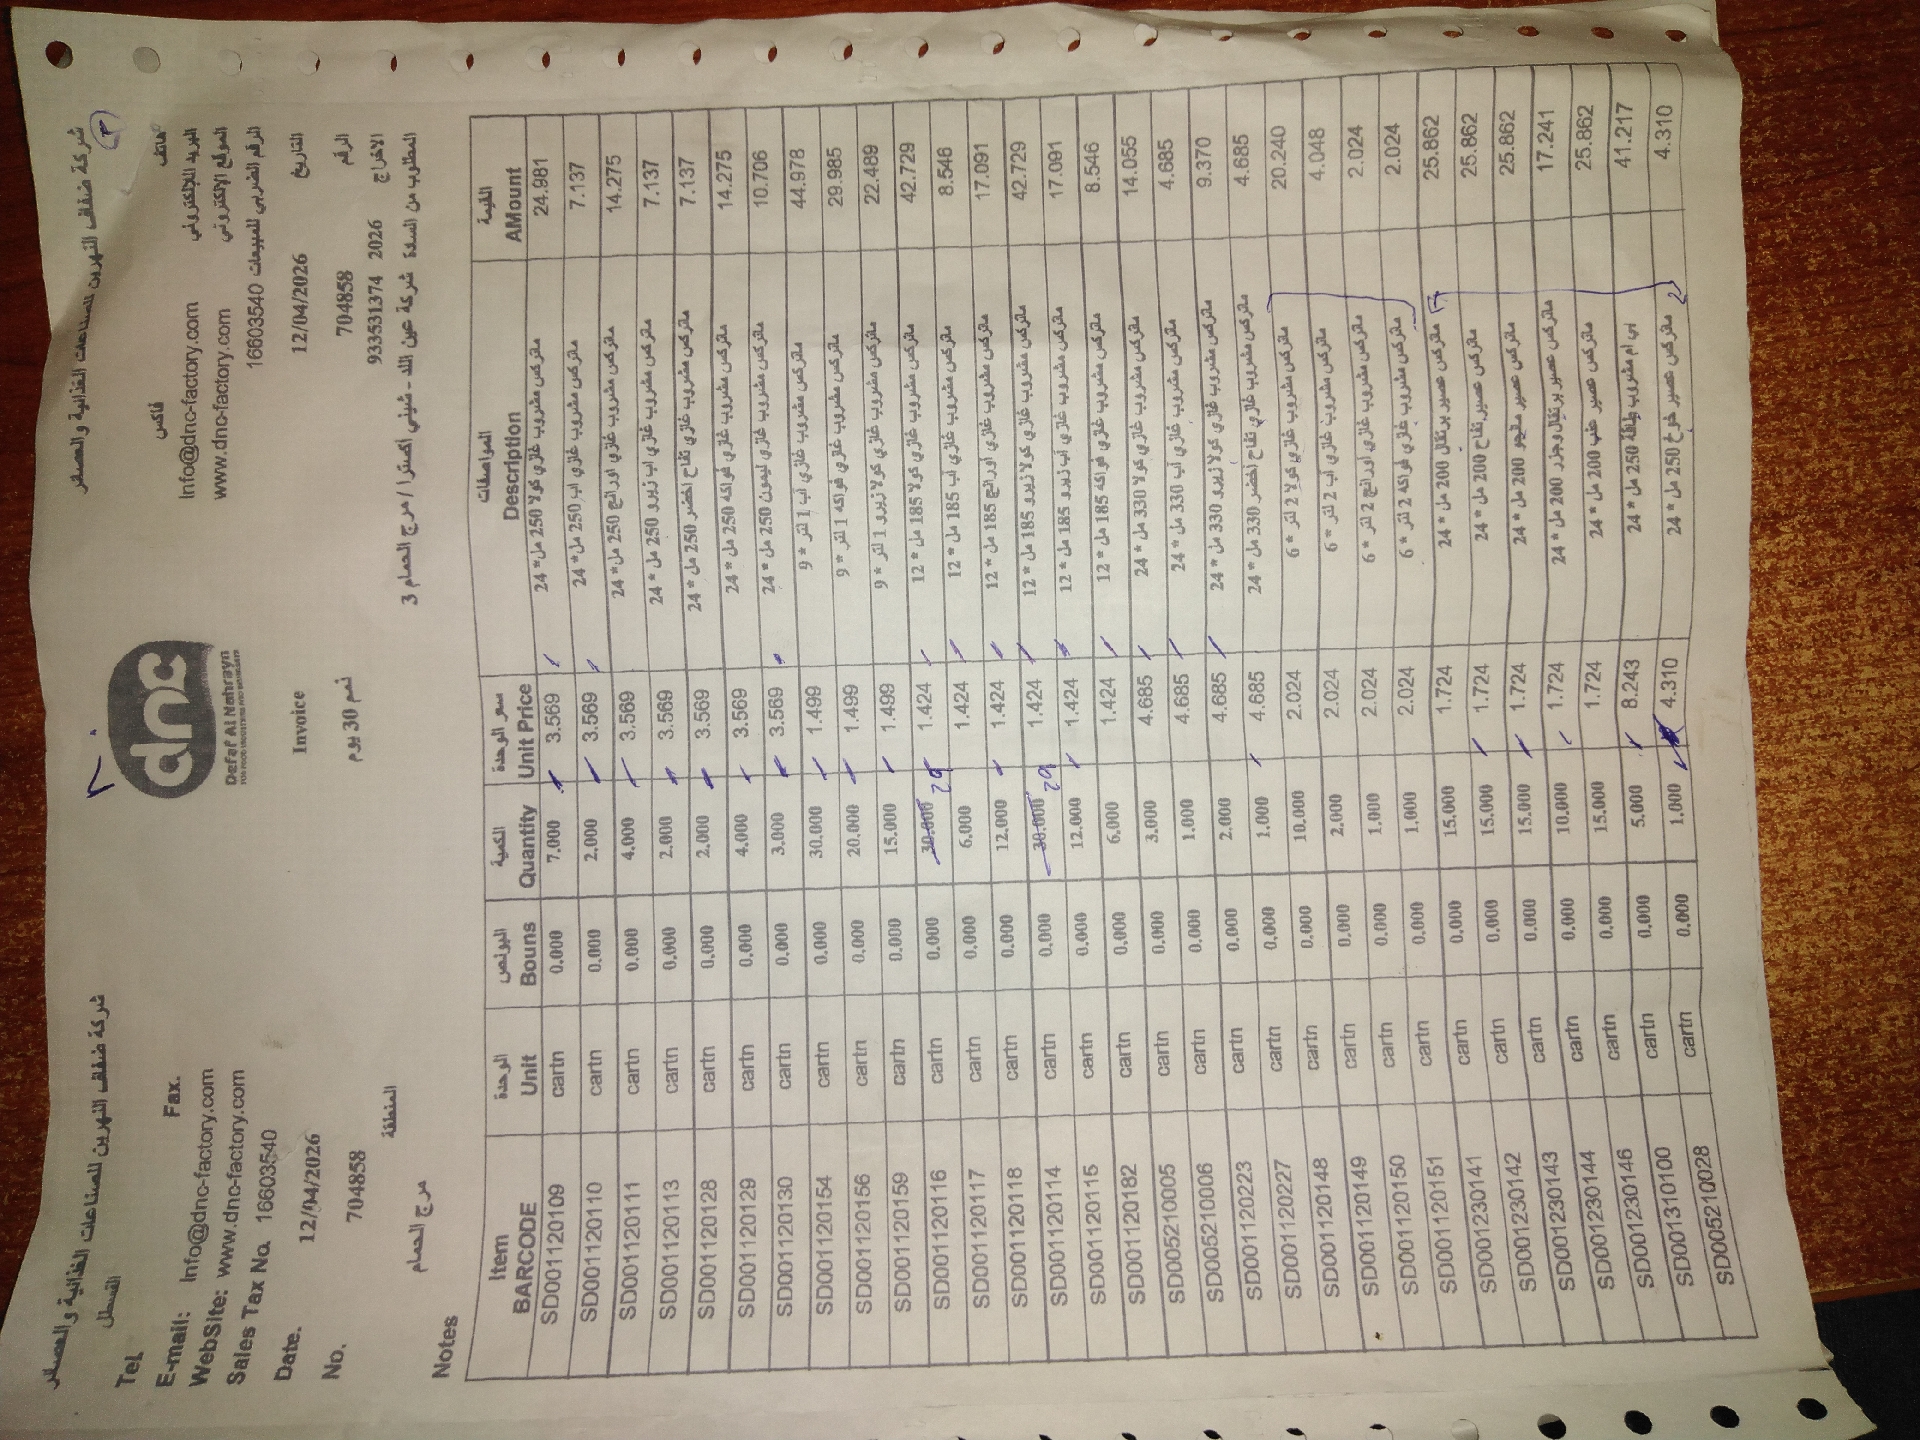 شركة ضفاف النهرين للصناعات الغذائية والعصائر
شركة ضفاف النهرين للصناعات الغذائية والعصائر
القسطل
Tel. Fax. فاكس هاتف
E-mail: Info@dnc-factory.com Info@dnc-factory.com البريد الالكتروني
WebSite: www.dnc-factory.com www.dnc-factory.com الموقع الالكتروني
Sales Tax No. 16603540 16603540 الرقم الضريبي للمبيعات
dnc
Defaf Al Nahrayn
Date. 12/04/2026 Invoice 12/04/2026 التاريخ
No. 704858 ذمم 30 يوم 704858 الرقم
المنطقة 933531374 2026 الاخراج
مرج الحمام المطلوب من السادة شركة عين الله - شيني اكسترا / مرج الحمام 3
Notes
Item الوحدة البونص الكمية سعر الوحدة المواصفات القيمة
BARCODE Unit Bouns Quantity Unit Price Description AMount
SD001120109 cartn 0.000 7.000 3.569 ماتركس مشروب غازي كولا 250 مل* 24 24.981
SD001120110 cartn 0.000 2.000 3.569 ماتركس مشروب غازي اب 250 مل* 24 7.137
SD001120111 cartn 0.000 4.000 3.569 ماتركس مشروب غازي اورانج 250 مل* 24 14.275
SD001120113 cartn 0.000 2.000 3.569 ماتركس مشروب غازي اب زيرو 250 مل * 24 7.137
SD001120128 cartn 0.000 2.000 3.569 ماتركس مشروب غازي تفاح اخضر 250 مل * 24 7.137
SD001120129 cartn 0.000 4.000 3.569 ماتركس مشروب غازي فواكه 250 مل * 24 14.275
SD001120130 cartn 0.000 3.000 3.569 ماتركس مشروب غازي ليمون 250 مل * 24 10.706
SD001120154 cartn 0.000 30.000 1.499 ماتركس مشروب غازي اب 1 لتر * 9 44.978
SD001120156 cartn 0.000 20.000 1.499 ماتركس مشروب غازي فواكه 1 لتر * 9 29.985
SD001120159 cartn 0.000 15.000 1.499 ماتركس مشروب غازي كولا زيرو 1 لتر * 9 22.489
SD001120116 cartn 0.000 30.000 29 1.424 ماتركس مشروب غازي كولا 185 مل * 12 42.729
SD001120117 cartn 0.000 6.000 1.424 ماتركس مشروب غازي اب 185 مل * 12 8.546
SD001120118 cartn 0.000 12.000 1.424 ماتركس مشروب غازي اورانج 185 مل * 12 17.091
SD001120114 cartn 0.000 30.000 29 1.424 ماتركس مشروب غازي كولا زيرو 185 مل * 12 42.729
SD001120115 cartn 0.000 12.000 1.424 ماتركس مشروب غازي اب زيرو 185 مل * 12 17.091
SD001120182 cartn 0.000 6.000 1.424 ماتركس مشروب غازي فواكه 185 مل * 12 8.546
SD005210005 cartn 0.000 3.000 4.685 ماتركس مشروب غازي كولا 330 مل * 24 14.055
SD005210006 cartn 0.000 1.000 4.685 ماتركس مشروب غازي اب 330 مل * 24 4.685
SD001120223 cartn 0.000 2.000 4.685 ماتركس مشروب غازي كولا زيرو 330 مل * 24 9.370
SD001120227 cartn 0.000 1.000 4.685 ماتركس مشروب غازي تفاح اخضر 330 مل * 24 4.685
SD001120148 cartn 0.000 10.000 2.024 ماتركس مشروب غازي كولا 2 لتر * 6 20.240
SD001120149 cartn 0.000 2.000 2.024 ماتركس مشروب غازي اب 2 لتر * 6 4.048
SD001120150 cartn 0.000 1.000 2.024 ماتركس مشروب غازي اورانج 2 لتر * 6 2.024
SD001120151 cartn 0.000 1.000 2.024 ماتركس مشروب غازي فواكه 2 لتر * 6 2.024
SD001230141 cartn 0.000 15.000 1.724 ماتركس عصير برتقال 200 مل * 24 25.862
SD001230142 cartn 0.000 15.000 1.724 ماتركس عصير تفاح 200 مل * 24 25.862
SD001230143 cartn 0.000 15.000 1.724 ماتركس عصير مانجو 200 مل * 24 25.862
SD001230144 cartn 0.000 10.000 1.724 ماتركس عصير برتقال وجزر 200 مل * 24 17.241
SD001230146 cartn 0.000 15.000 1.724 ماتركس عصير عنب 200 مل * 24 25.862
SD001310100 cartn 0.000 5.000 8.243 اب ام مشروب طاقة 250 مل * 24 41.217
SD005210028 cartn 0.000 1.000 4.310 ماتركس عصير خوخ 250 مل * 24 4.310